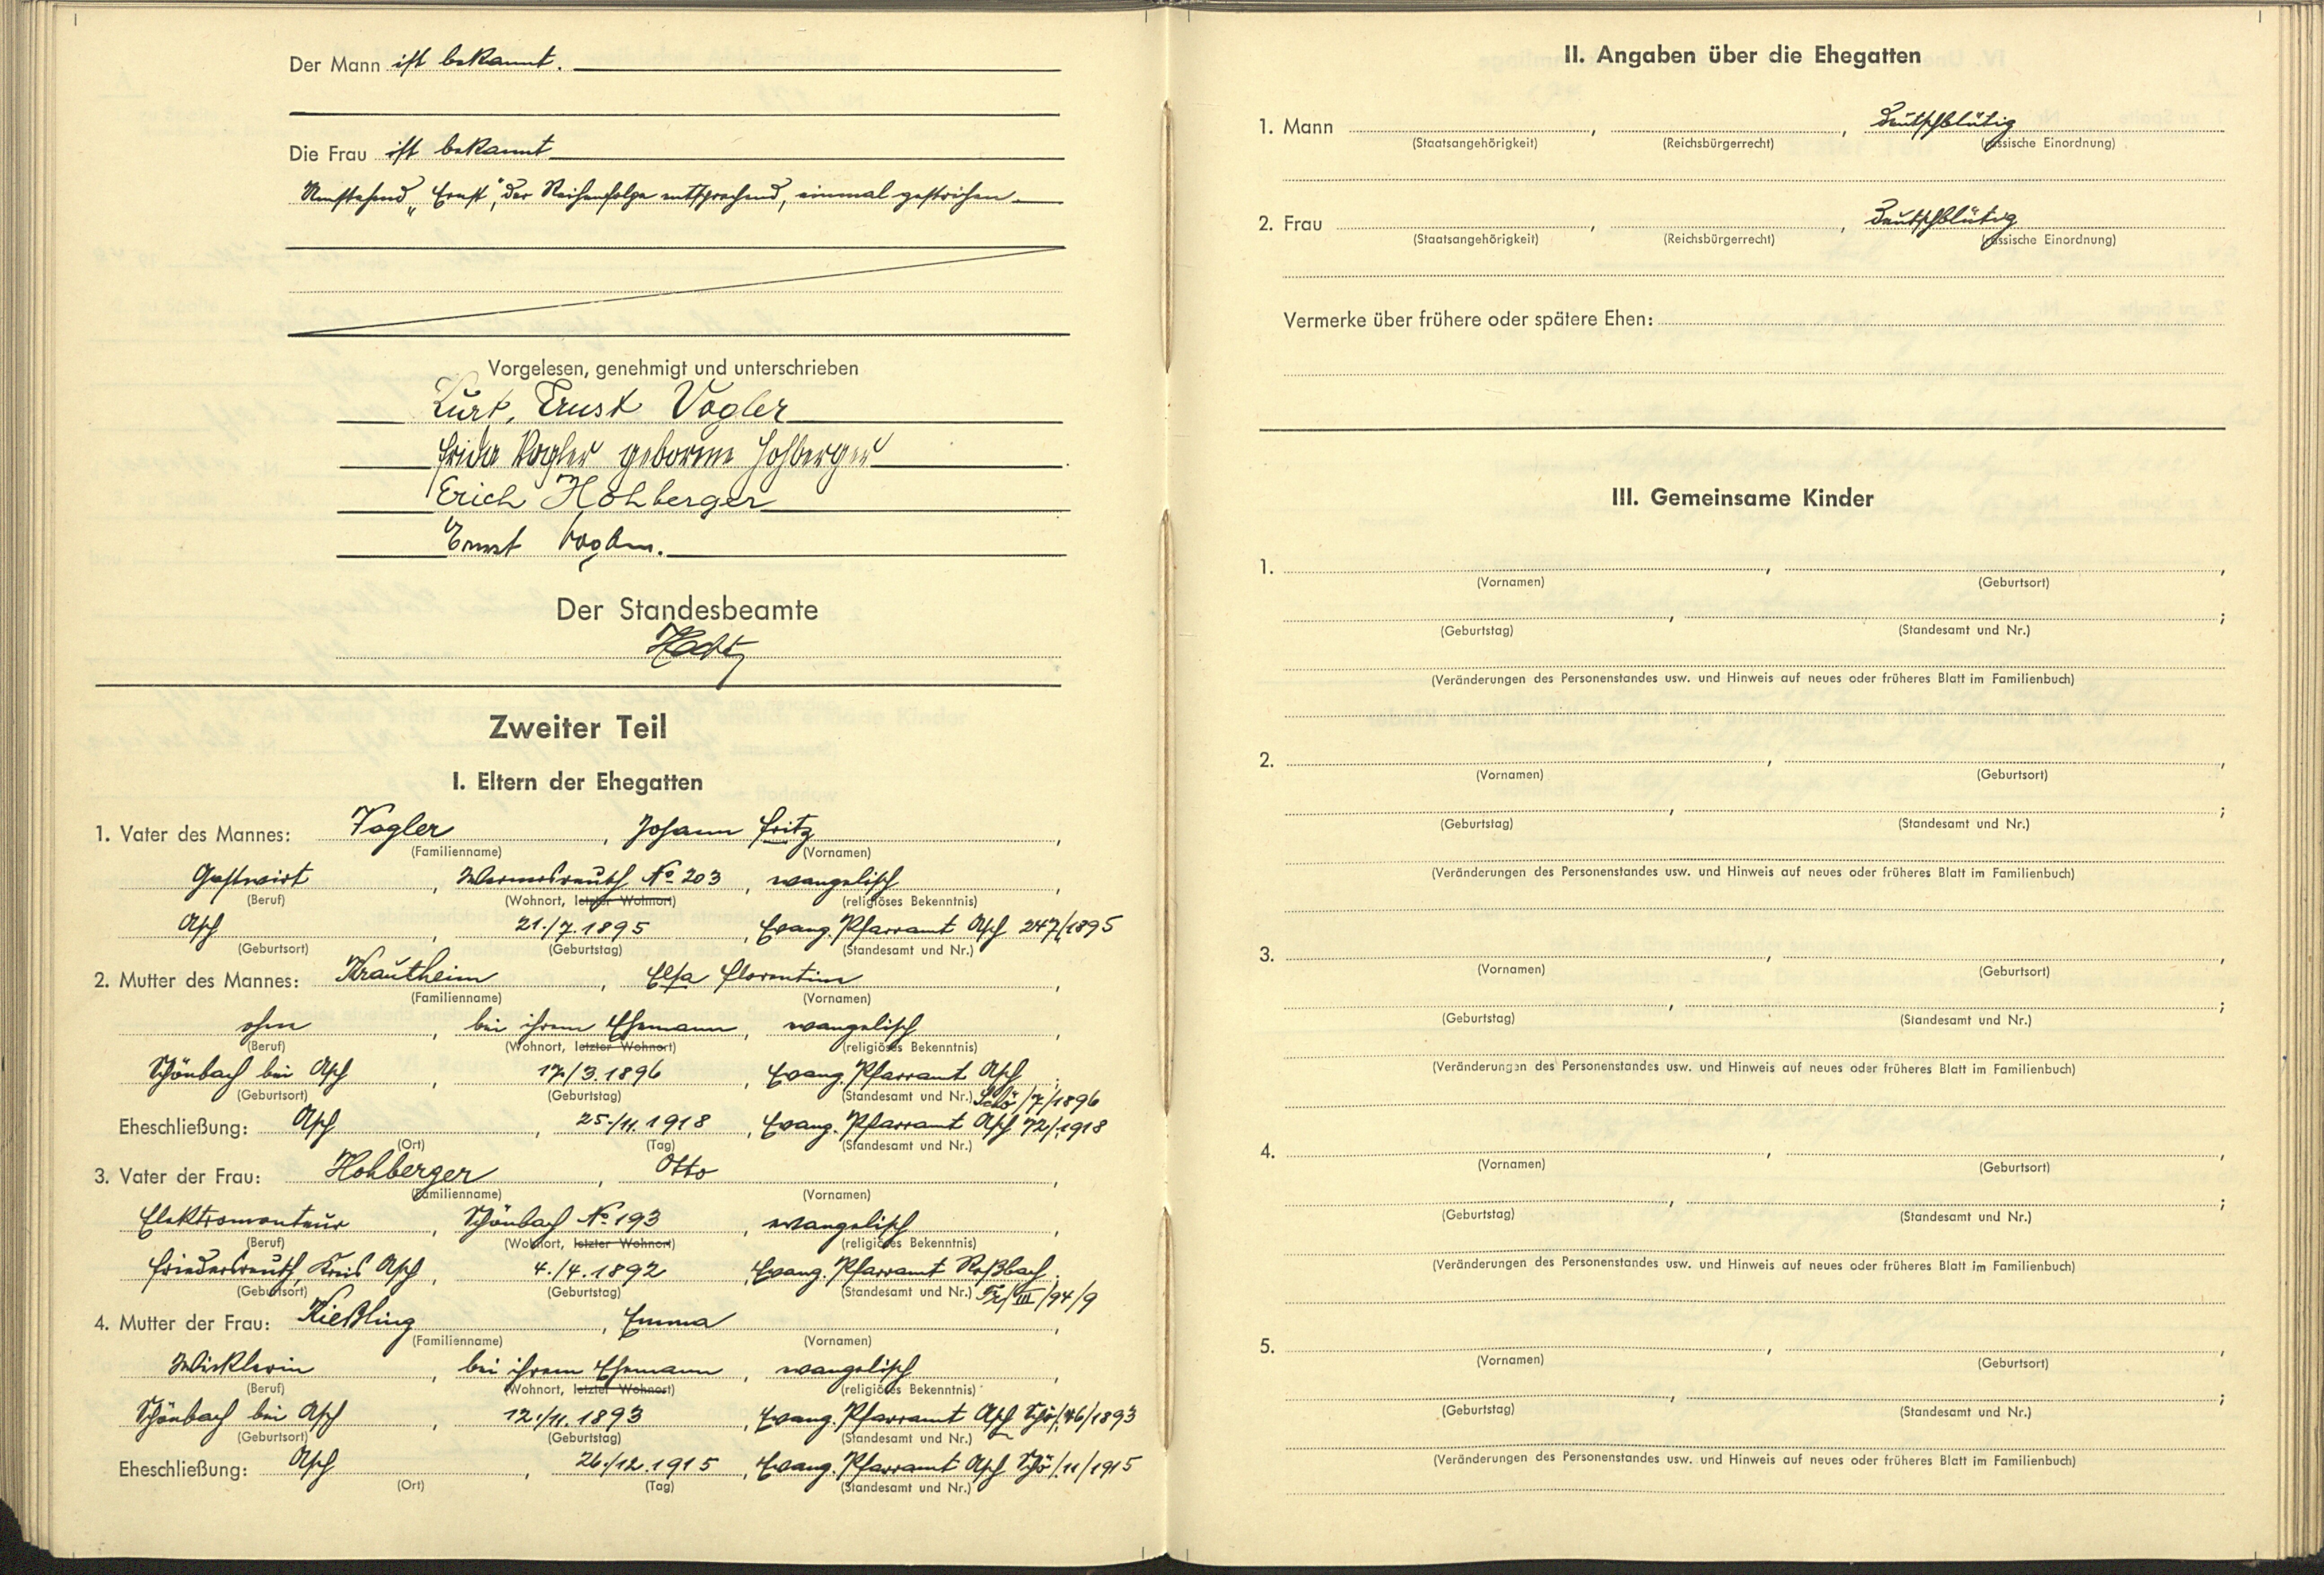 Der Mann ist bekannt.
Die Frau ist bekannt
Umstehend „Ernst", der Reihenfolge entsprechend, einmal gestrichen
Vorgelesen, genehmigt und unterschrieben
Kurt, Ernst Vogler
Frida Vogler geborene Hohberger
Erich Hohberger
Ernst Vogler.
Der Standesbeamte
Zweiter Teil
I. Eltern der Ehegatten
1. Vater des Mannes: Vogler, Johann Fritz,
(Familienname) (Vornamen)
Gastwirt, Wernersreuth No 203, evangelisch,
(Beruf) (Wohnort, letzter Wohnort) (religiöses Bekenntnis)
Asch, 21./7.1895, Evang. Pfarramt Asch 247/1895
(Geburtsort) (Geburtstag) (Standesamt und Nr.)
2. Mutter des Mannes: Krautheim, Elsa Florentine,
(Familienname) (Vornamen)
ohne, bei ihrem Ehemann, evangelisch,
(Beruf) (Wohnort, letzter Wohnort) (religiöses Bekenntnis)
Schönbach bei Asch, 17./3.1896, Evang. Pfarramt Asch;
(Geburtsort) (Geburtstag) (Standesamt und Nr.) Schö/7/1896
Eheschließung: Asch, 25./11.1918, Evang. Pfarramt Asch 72/1918
(Ort) (Tag) (Standesamt und Nr.)
3. Vater der Frau: Hohberger, Otto,
(Familienname) (Vornamen)
Elektromonteur, Schönbach No 193, evangelisch,
(Beruf) (Wohnort, letzter Wohnort) (religiöses Bekenntnis)
Friedersreuth, Kreis Asch, 4./4.1892, Evang. Pfarramt Roßbach;
(Geburtsort) (Geburtstag) (Standesamt und Nr.) Fr/III/94/9
4. Mutter der Frau: Kießling, Emma,
(Familienname) (Vornamen)
Wirklerin, bei ihrem Ehemann, evangelisch,
(Beruf) (Wohnort, letzter Wohnort) (religiöses Bekenntnis)
Schönbach bei Asch, 12./11.1893, Evang. Pfarramt Asch Schö/46/1893
(Geburtsort) (Geburtstag) (Standesamt und Nr.)
Eheschließung: Asch, 26./12.1915, Evang. Pfarramt Asch Schö/11/1915
(Ort) (Tag) (Standesamt und Nr.)
II. Angaben über die Ehegatten
1. Mann , , deutschblütig
(Staatsangehörigkeit) (Reichsbürgerrecht) (rassische Einordnung)
2. Frau , , deutschblütig
(Staatsangehörigkeit) (Reichsbürgerrecht) (rassische Einordnung)
Vermerke über frühere oder spätere Ehen:
III. Gemeinsame Kinder
1. , ,
(Vornamen) (Geburtsort)
, ;
(Geburtstag) (Standesamt und Nr.)
(Veränderungen des Personenstandes usw. und Hinweis auf neues oder früheres Blatt im Familienbuch)
2. , ,
(Vornamen) (Geburtsort)
, ;
(Geburtstag) (Standesamt und Nr.)
(Veränderungen des Personenstandes usw. und Hinweis auf neues oder früheres Blatt im Familienbuch)
3. , ,
(Vornamen) (Geburtsort)
, ;
(Geburtstag) (Standesamt und Nr.)
(Veränderungen des Personenstandes usw. und Hinweis auf neues oder früheres Blatt im Familienbuch)
4. , ,
(Vornamen) (Geburtsort)
, ;
(Geburtstag) (Standesamt und Nr.)
(Veränderungen des Personenstandes usw. und Hinweis auf neues oder früheres Blatt im Familienbuch)
5. , ,
(Vornamen) (Geburtsort)
, ;
(Geburtstag) (Standesamt und Nr.)
(Veränderungen des Personenstandes usw. und Hinweis auf neues oder früheres Blatt im Familienbuch)